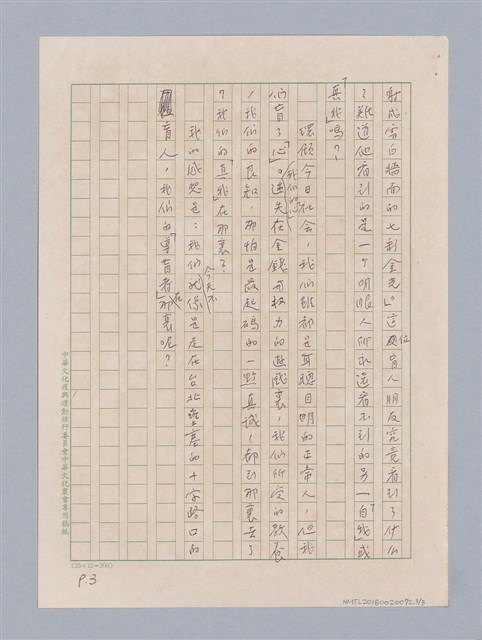 射成雪白牆面的七彩金光」。這位盲人朋友究竟看到了什么
？難道他看到的是一个明眼人所永遠看不到的另一「自我」或
「真我」嗎？
環顧今日社会，我們雖都是耳聰目明的正常人，但我
們盲了「心」。我們的心迷失在金錢和权力的遊戲裏，我們所受的教養
，我們的良知，那怕是最起碼的一點真誠，都到那裏去了
？我們的「真我」在那裏？
我的感想是：我們今天不就像是走在台北壅塞的十字路口的
盲人，我們的「導盲者」在那裏呢？
中華文化復興運動推行委員會中華文化叢書專用稿紙
(25×12=300)
P.3
NMTL20180020092 3/3